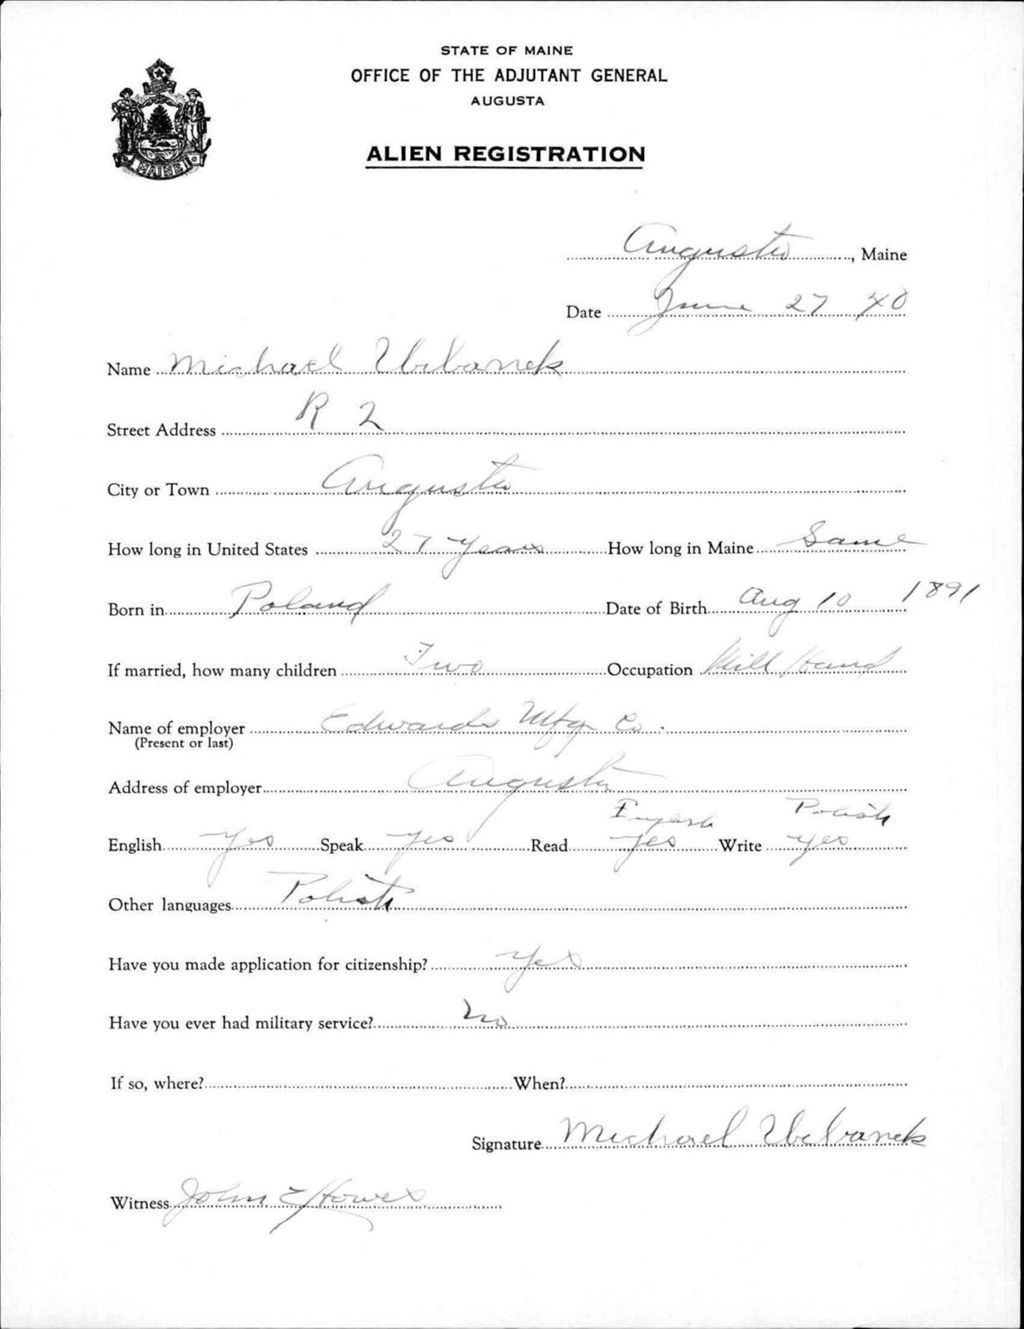 STATE OF MAINE
OFFICE OF THE ADJUTANT GENERAL
AUGUSTA
ALIEN REGISTRATION
MAINE
Augusta, Maine
Date June 27 40
Name Michael Urbanek
Street Address R 2
City or Town Augusta
How long in United States 27 years How long in Maine Same
Born in Poland Date of Birth Aug 10 1891
If married, how many children Two Occupation Mill Hand
Name of employer Edwards Mfg Co.
(Present or last)
Address of employer Augusta
Polish
English yes Speak yes Read yes Write yes
Other languages Polish
Have you made application for citizenship? Yes
Have you ever had military service? No
If so, where? When?
Signature Michael Urbanek
Witness John E Howes